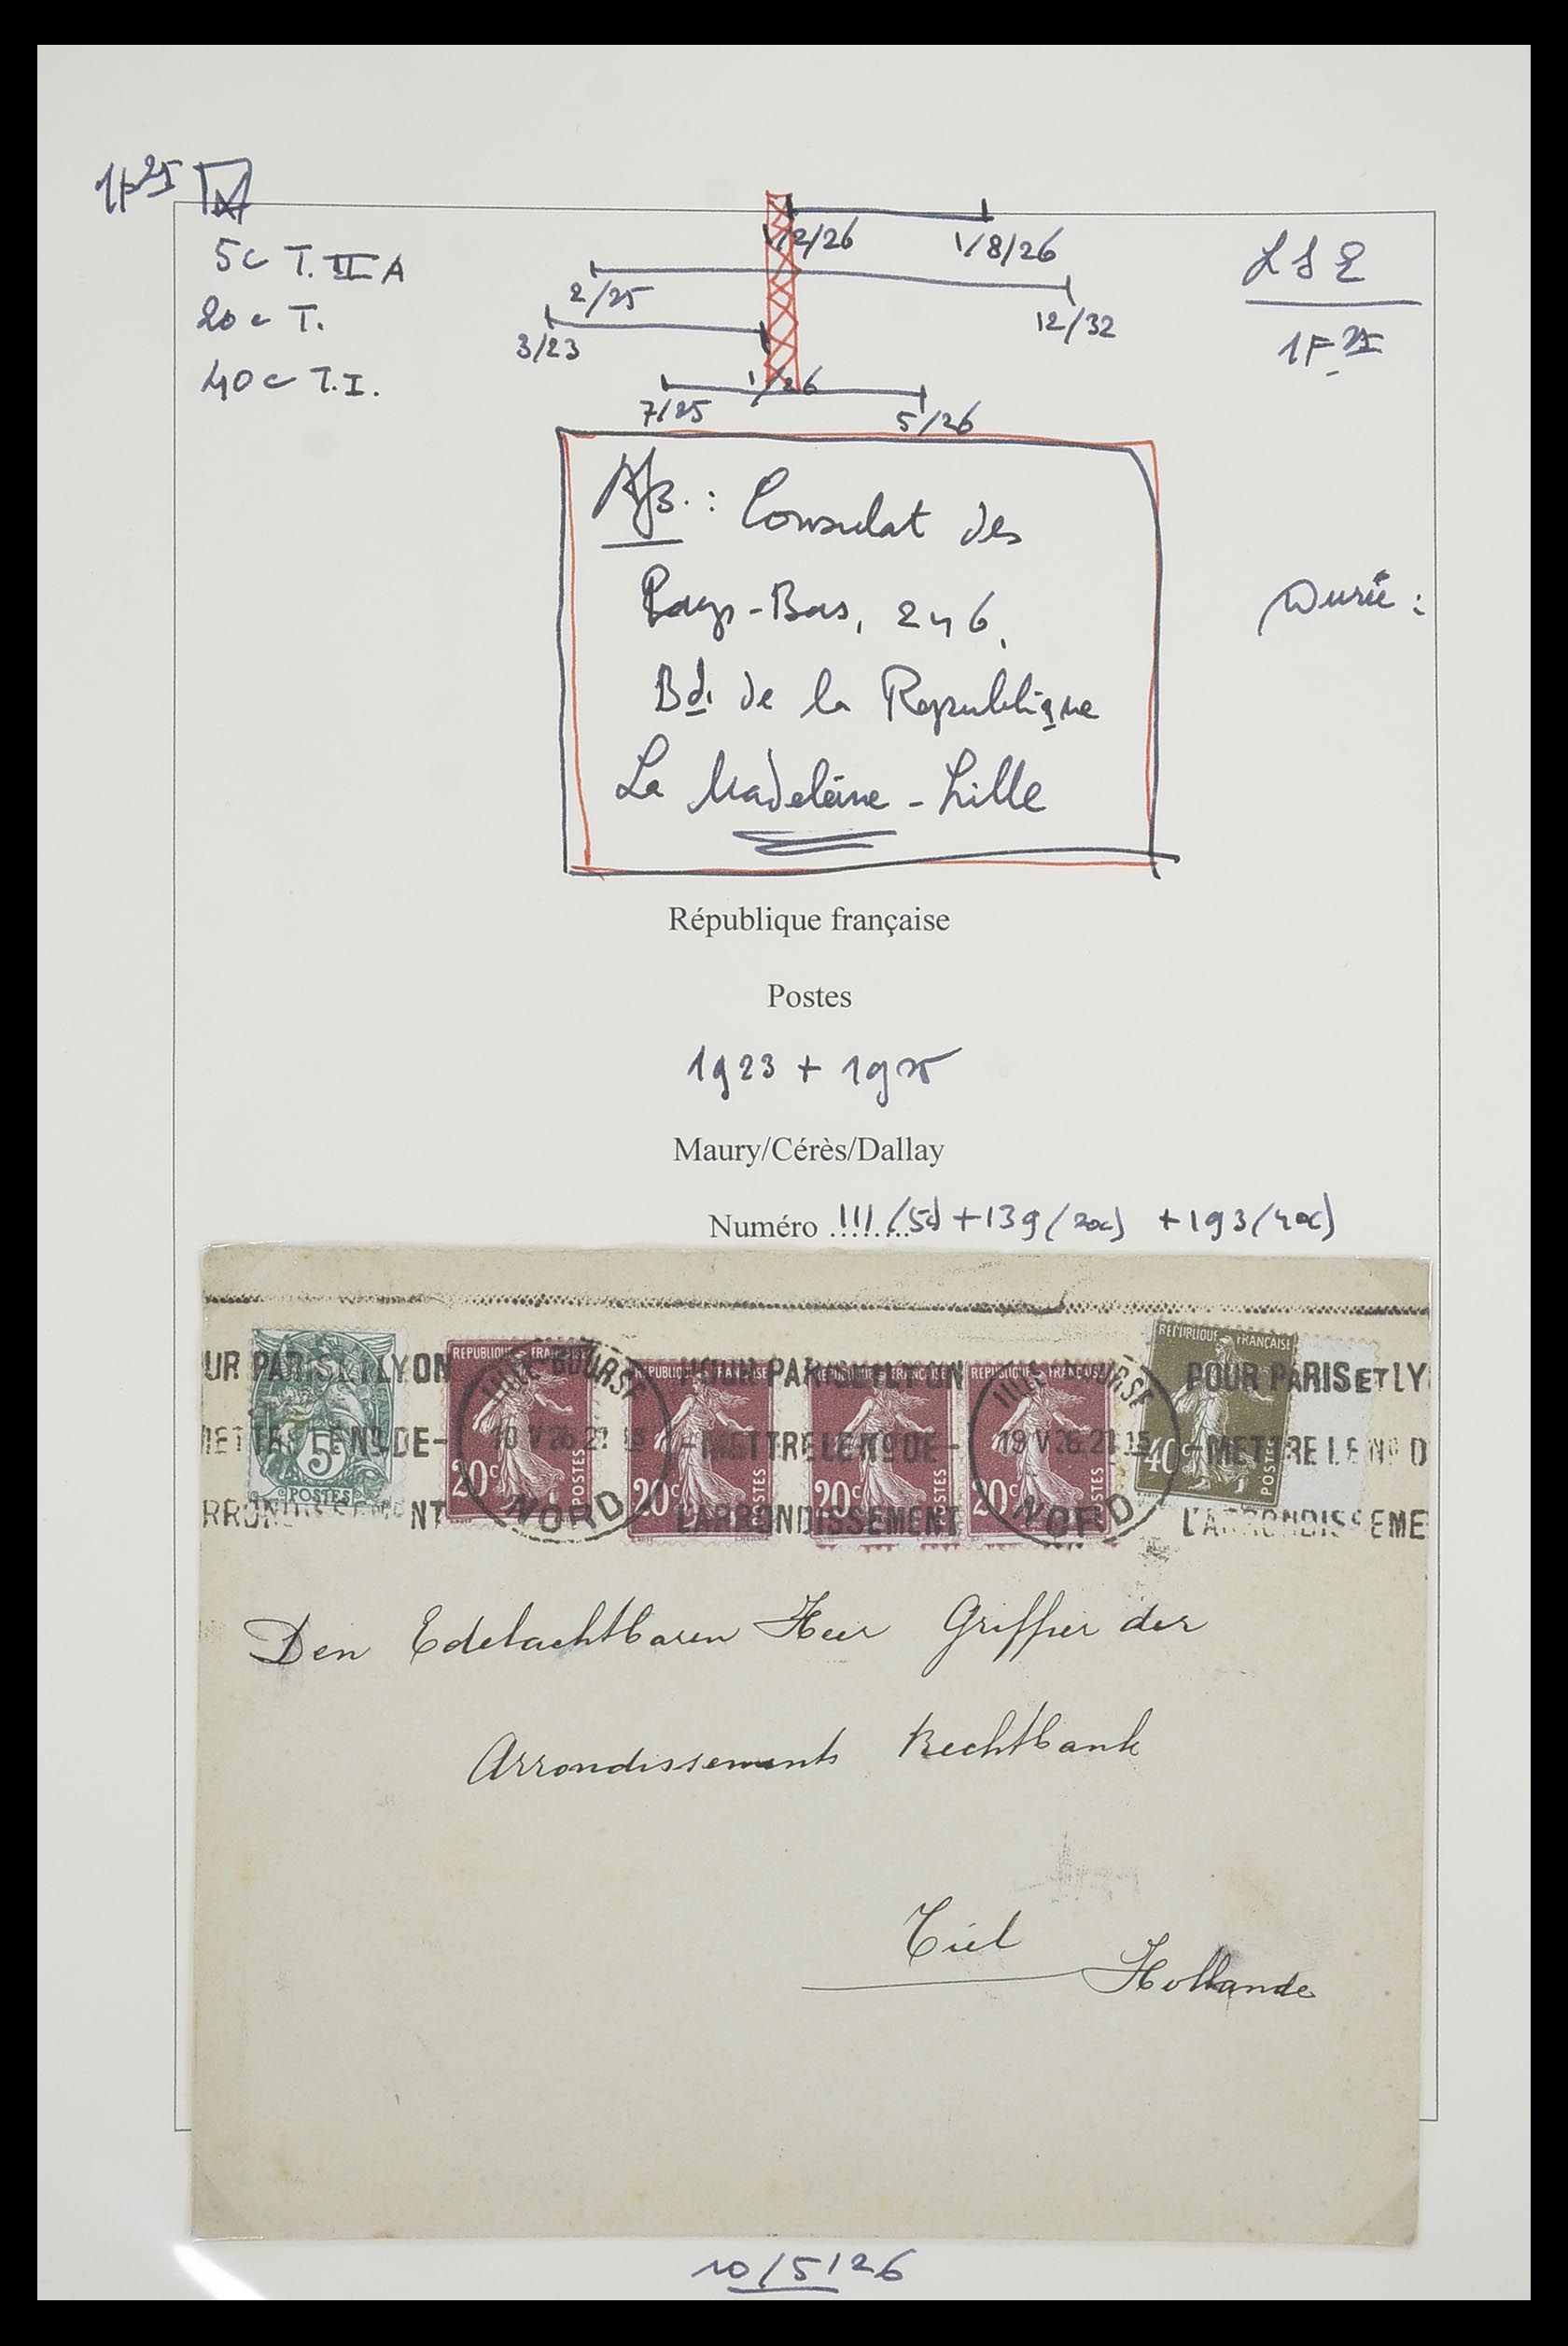 1F25
5c T. II A
20c T.
40c T.I.
1/2/26 1/8/26
2/25 12/32
3/23 1/26
7/25 5/26
LSE
1F 25
Afs. : Consulat des
Pays-Bas, 246,
Bd. de la Republique
La Madeleine - Lille
Durée :
République française
Postes
1923 + 1925
Maury/Cérès/Dallay
Numéro ......... 111 (5c) + 139 (20c) + 193 (40c)
UR PARIS ET LYON
METTRE LE No DE-
RRONDISSEMENT
5c
POSTES
REPUBLIQUE FRANÇAISE
20c POSTES
LILLE BOURSE
10 V 26 21 15
NORD
REPUBLIQUE FRANÇAISE
20c POSTES
POUR PARIS ET LYON
-METTRE LE No DE-
L'ARRONDISSEMENT
REPUBLIQUE FRANÇAISE
20c POSTES
REPUBLIQUE FRANÇAISE
20c POSTES
LILLE BOURSE
19 V 26 21 15
NORD
REPUBLIQUE FRANÇAISE
40c POSTES
POUR PARIS ET LY
-METTRE LE No D
L'ARRONDISSEME
Den Edelachtbaren Heer Griffier der
Arrondissements Rechtbank
Tiel
Hollande
10/5/26